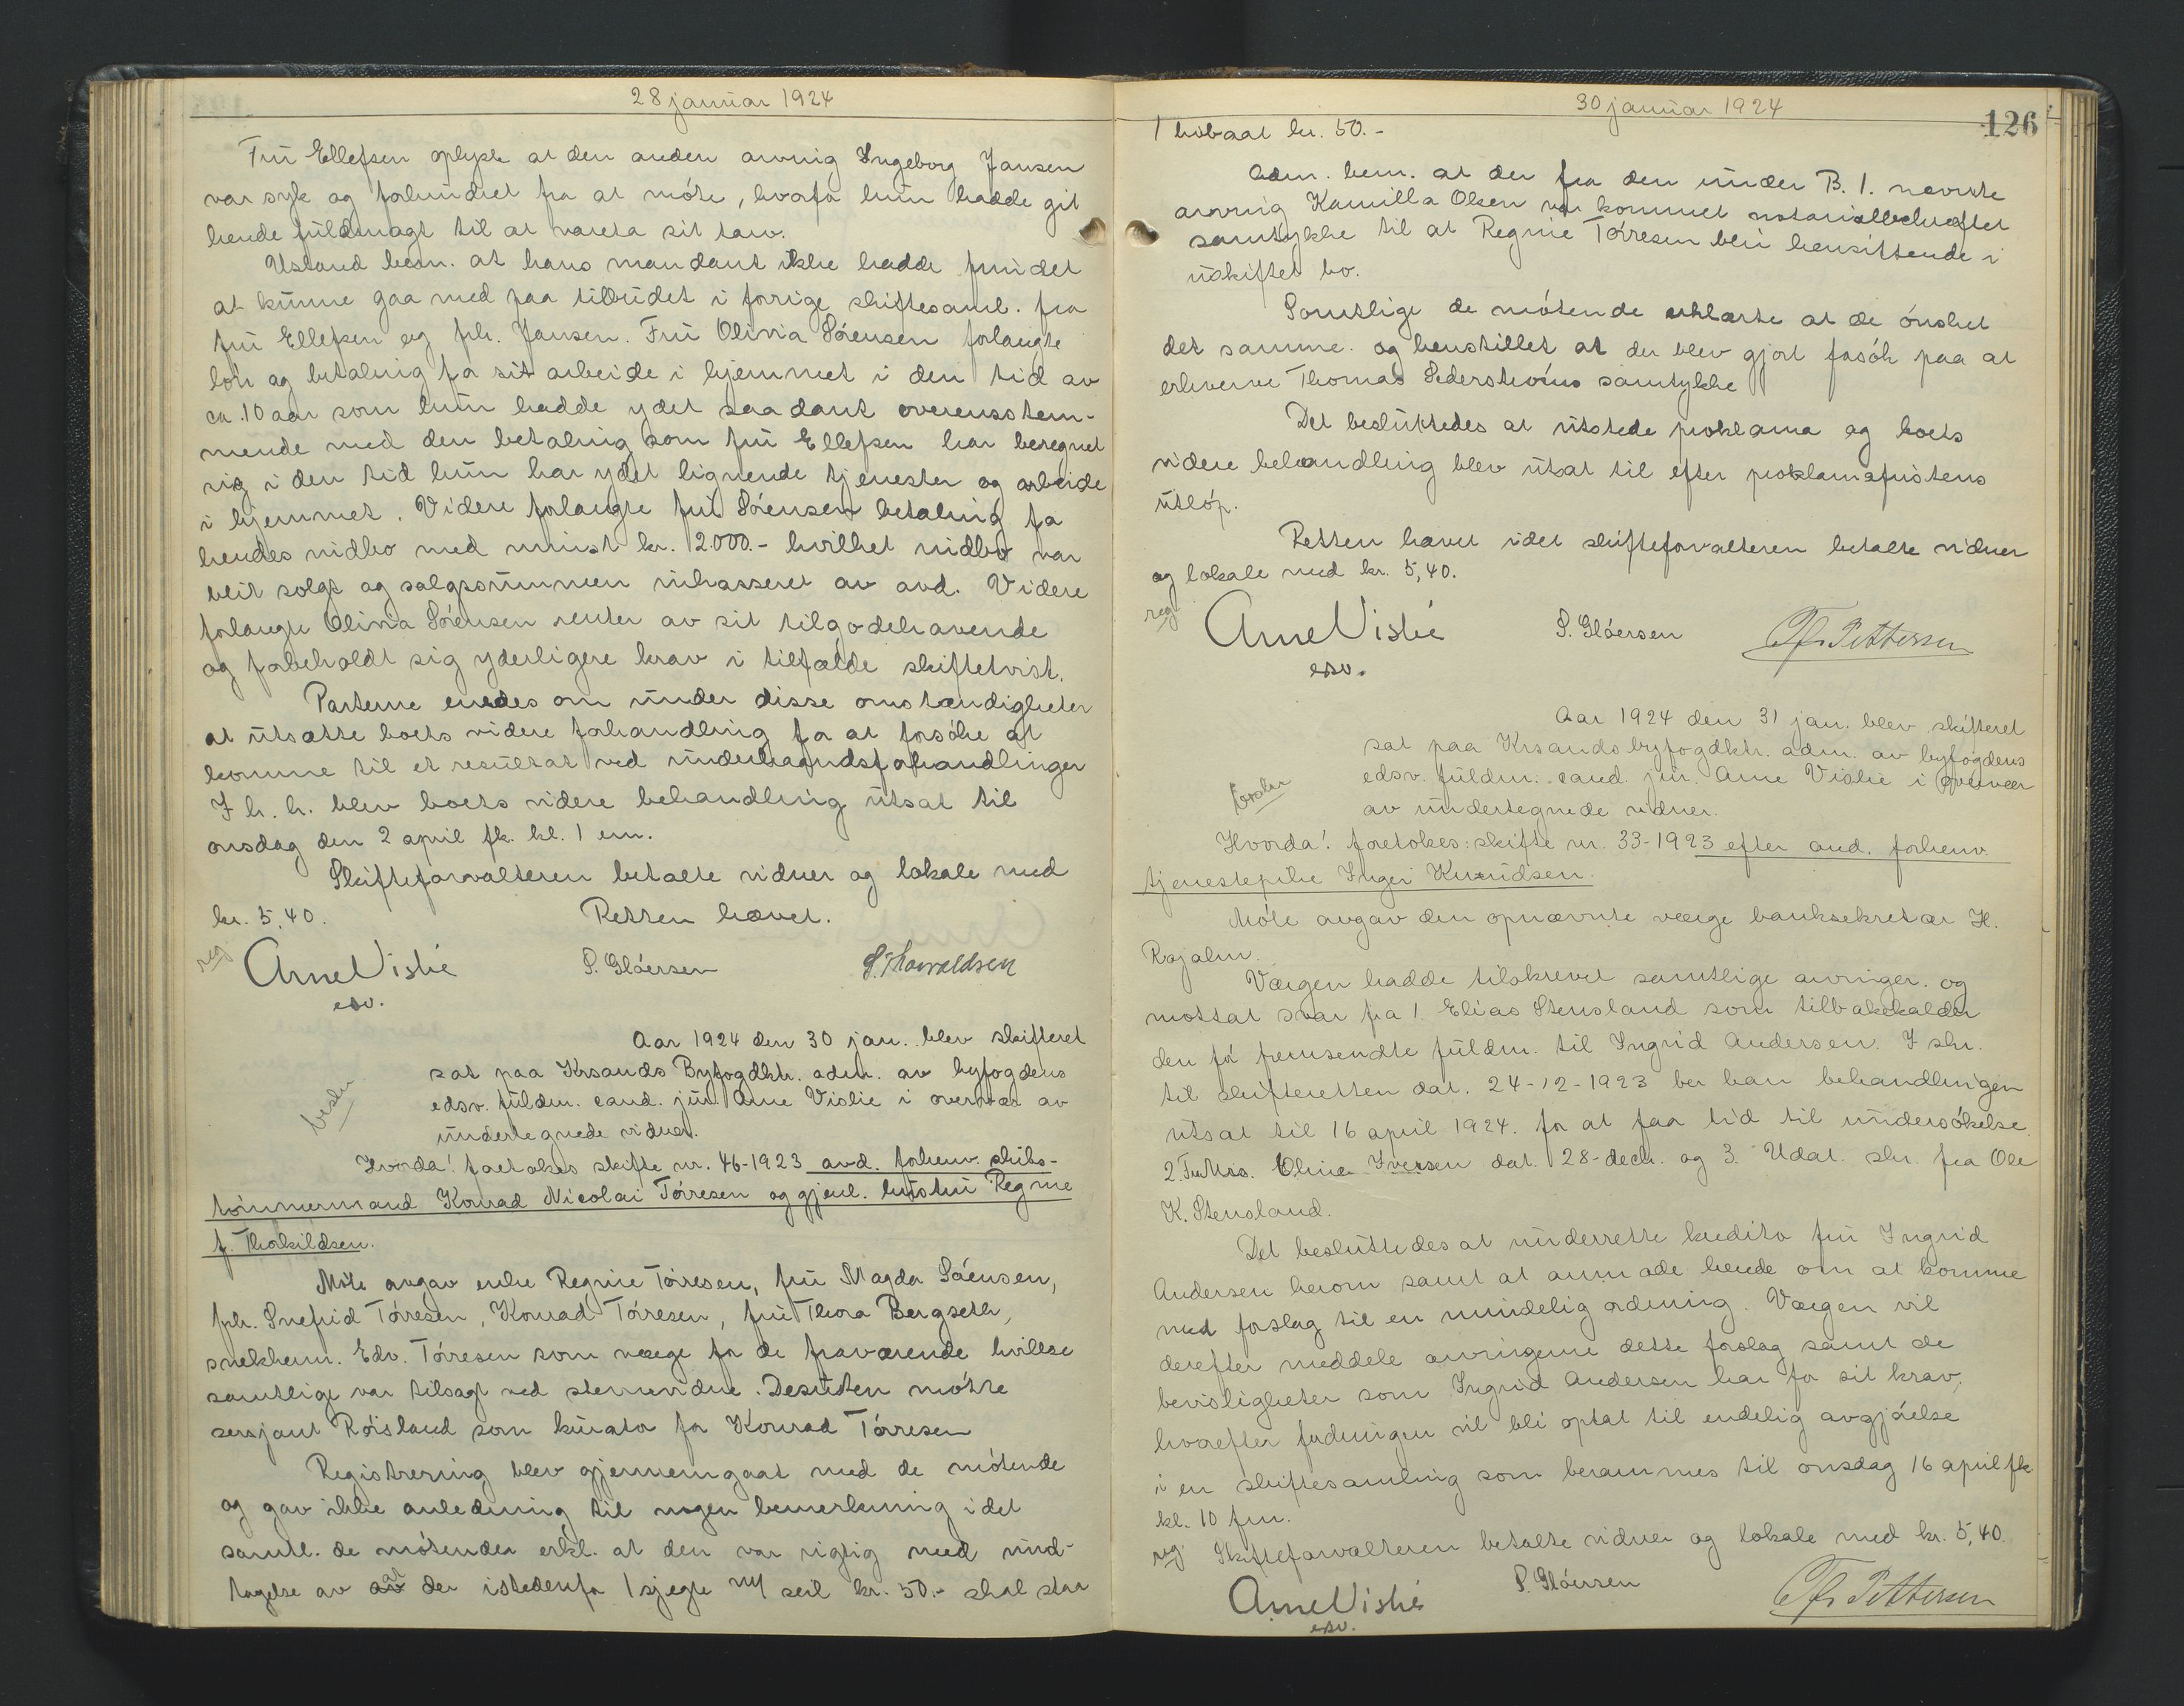 28 januar 1924
Fru Ellefsen oplyste at den anden arving Ingeborg Jansen
var syk og forhindret fra at møte, hvorfor hun hadde git
hende fuldmagt til at vareta sit tarv.
Ustand bem. at hans mandant ikke hadde fundet
at kunne gaa med paa tilbudet i forrige skiftesaml. fra
fru Ellefsen og frk. Jansen. Fru Olivia Sørensen forlangte
løn og betaling for sit arbeide i hjemmet i den tid av
ca. 10 aar som hun hadde ydet saadant overensstem-
mende med den betaling som fru Ellefsen har beregnet
sig i den tid hun har ydet lignende tjenester og arbeide
i hjemmet. Videre forlangte fru Sørensen betaling for
hendes indbo med minst kr. 2.000.- hvilket indbo var
blit solgt og salgssummen inkasseret av avd. Videre
forlangte Olivia Sørensen renter av sit tilgodehavende
og forbeholdt sig yderligere krav i tilfælde skiftetvist.
Parterne enedes om under disse omstændigheter
at utsætte boets videre forhandling for at forsøke at
komme til et resultat ved underhaandsforhandlinger
I h. h. blev boets videre behandling utsat til
onsdag den 2 april fk. kl. 1 em.
Skifteforvalteren betalte vidner og lokale med
kr. 5,40. Retten hævet.
reg
Arne Vislie S. Gløersen S. Thorvaldsen
esv.
Aar 1924 den 30 jan. blev skifteret
sat paa Krsands Byfogdktr. adm. av byfogdens
edsv. fuldm. cand. jur. Arne Vislie i overvær av
undertegnede vidner.
beslu
Hvorda! foretokes skifte nr. 46-1923 avd. forhenv. skibs-
tømmermand Konrad Nicolai Tørresen og gjenl. hustru Regine
f. Thorkildsen.
Møte avgav enke Regine Tørresen, fru Magda Sørensen,
frk. Snefrid Tørresen, Konrad Tørresen, fru Thora Bergseth,
snekkerm. Edv. Tørresen som værge for de fraværende hvilke
samtlige var tilsagt ved stevnevidne. Desuten møtte
sersjant Røisland som kurator for Konrad Tørresen
Registrering blev gjennemgaat med de møtende
og gav ikke anledning til nogen bemerkning idet
samtl. de møtende erkl. at den var rigtig med und-
tagelse av at der istedenfor 1 sjegte m/ seil kr. 50.- skal staa
30 januar 1924
126
1 livbaat kr. 50.-
Adm. bem. at der fra den under B. 1. nævnte
arving Kamilla Olsen var kommet notarialbekræftet
samtykke til at Regine Tørresen blir hensittende i
uskiftet bo.
Samtlige de møtende erklærte at de ønsket
det samme. og henstillet at der blev gjort forsøk paa at
erhverve Thomas Sederstrøms samtykke
Det besluttedes at utstede proklama og boets
videre behandling blev utsat til efter proklamafristens
utløp.
Retten hævet idet skifteforvalteren betalte vidner
og lokale med kr. 5,40.
reg
Arne Vislie S. Gløersen Chr. Pettersen
esv.
Aar 1924 den 31 jan. blev skifteret
sat paa Krsands byfogdktr. adm. av byfogdens
edsv. fuldm. cand. jur. Arne Vislie i overvær
av undertegnede vidner.
beslu
Hvorda! foretokes: skifte nr. 33-1923 efter avd. forhenv.
tjenestepike Inger Knudsen.
Møte avgav den opnævnte værge banksekretær H.
Rajalm.
Værgen hadde tilskrevet samtlige arvinger. og
mottat svar fra 1. Elias Stensland som tilbakekalder
den før fremsendte fuldm. til Ingrid Andersen. I skr.
til skifteretten dat. 24-12-1923 ber han behandlingen
utsat til 16 april 1924. for at faa tid til undersøkelse
2. Fullm. Oline Iversen dat. 28-decb. og 3. Udat. skr. fra Ole
K. Stensland.
Det besluttedes at underrette kreditor fru Ingrid
Andersen herom samt at anmode hende om at komme
med forslag til en mindelig ordning. Værgen vil
derefter meddele arvingerne dette forslag samt de
bevisligheter som Ingrid Andersen har for sit krav,
hvorefter fordringen vil bli optat til endelig avgjørelse
i en skiftesamling som berammes til onsdag 16 april fk
kl. 10 fm.
reg Skifteforvalteren betalte vidner og lokale med kr. 5,40.
Arne Vislie S. Gløersen Chr. Pettersen
esv.